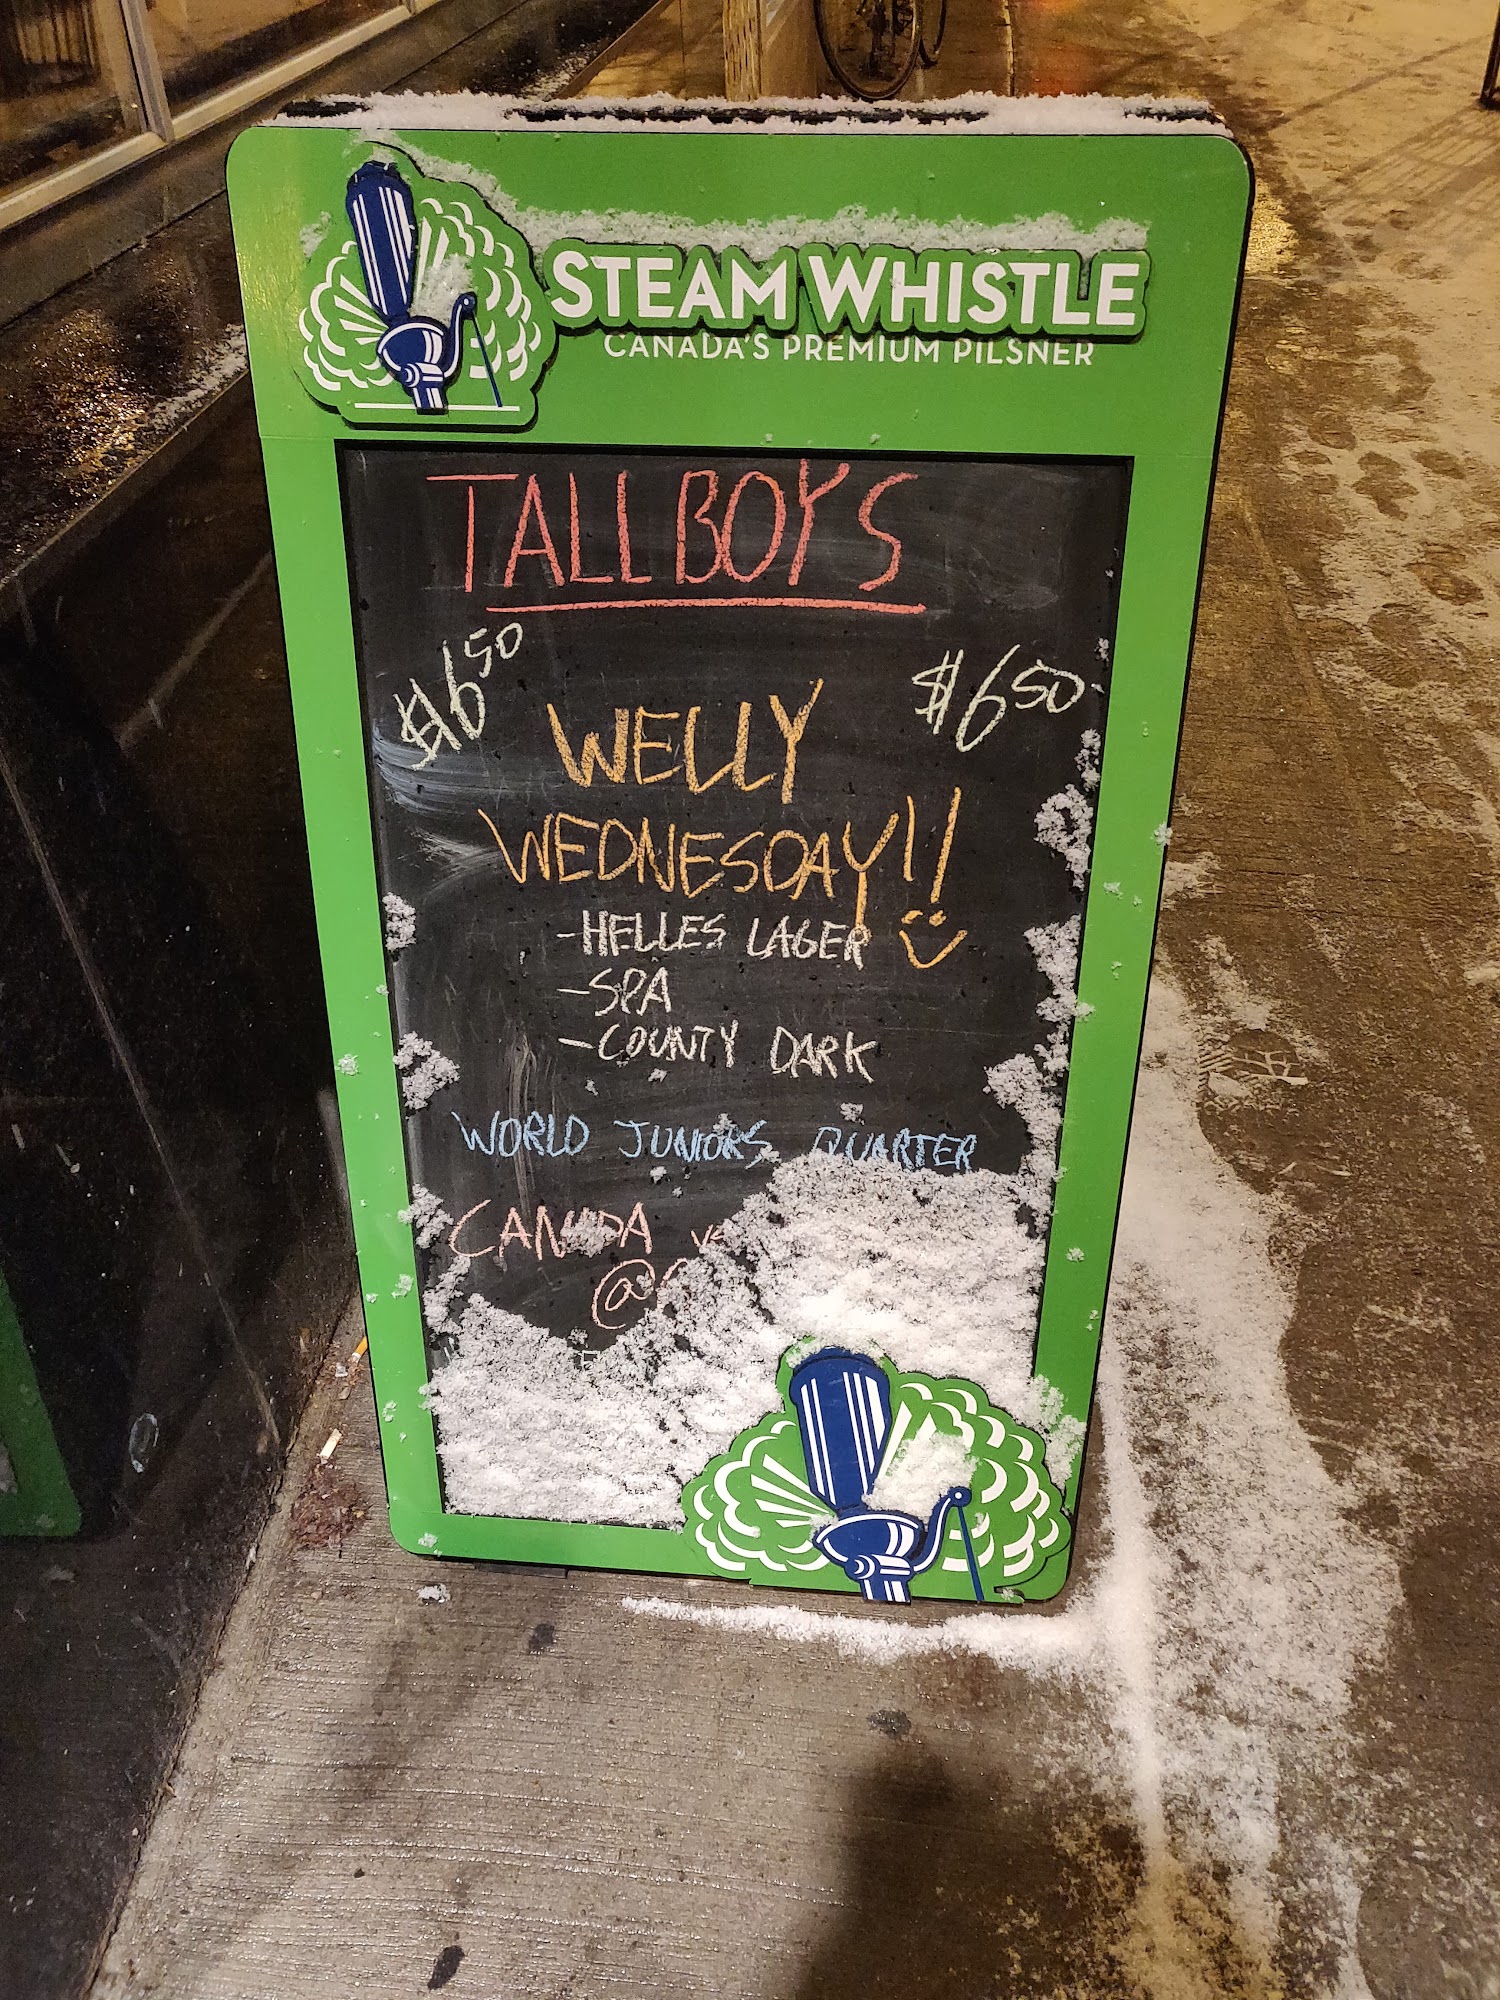 STEAM WHISTLE
CANADA'S PREMIUM PILSNER
TALL BOYS
$6.50 $6.50
WELLY
WEDNESDAY!!
-HELLES LAGER
-SPA
-COUNTY DARK
WORLD JUNIORS QUARTER
CANADA vs
@